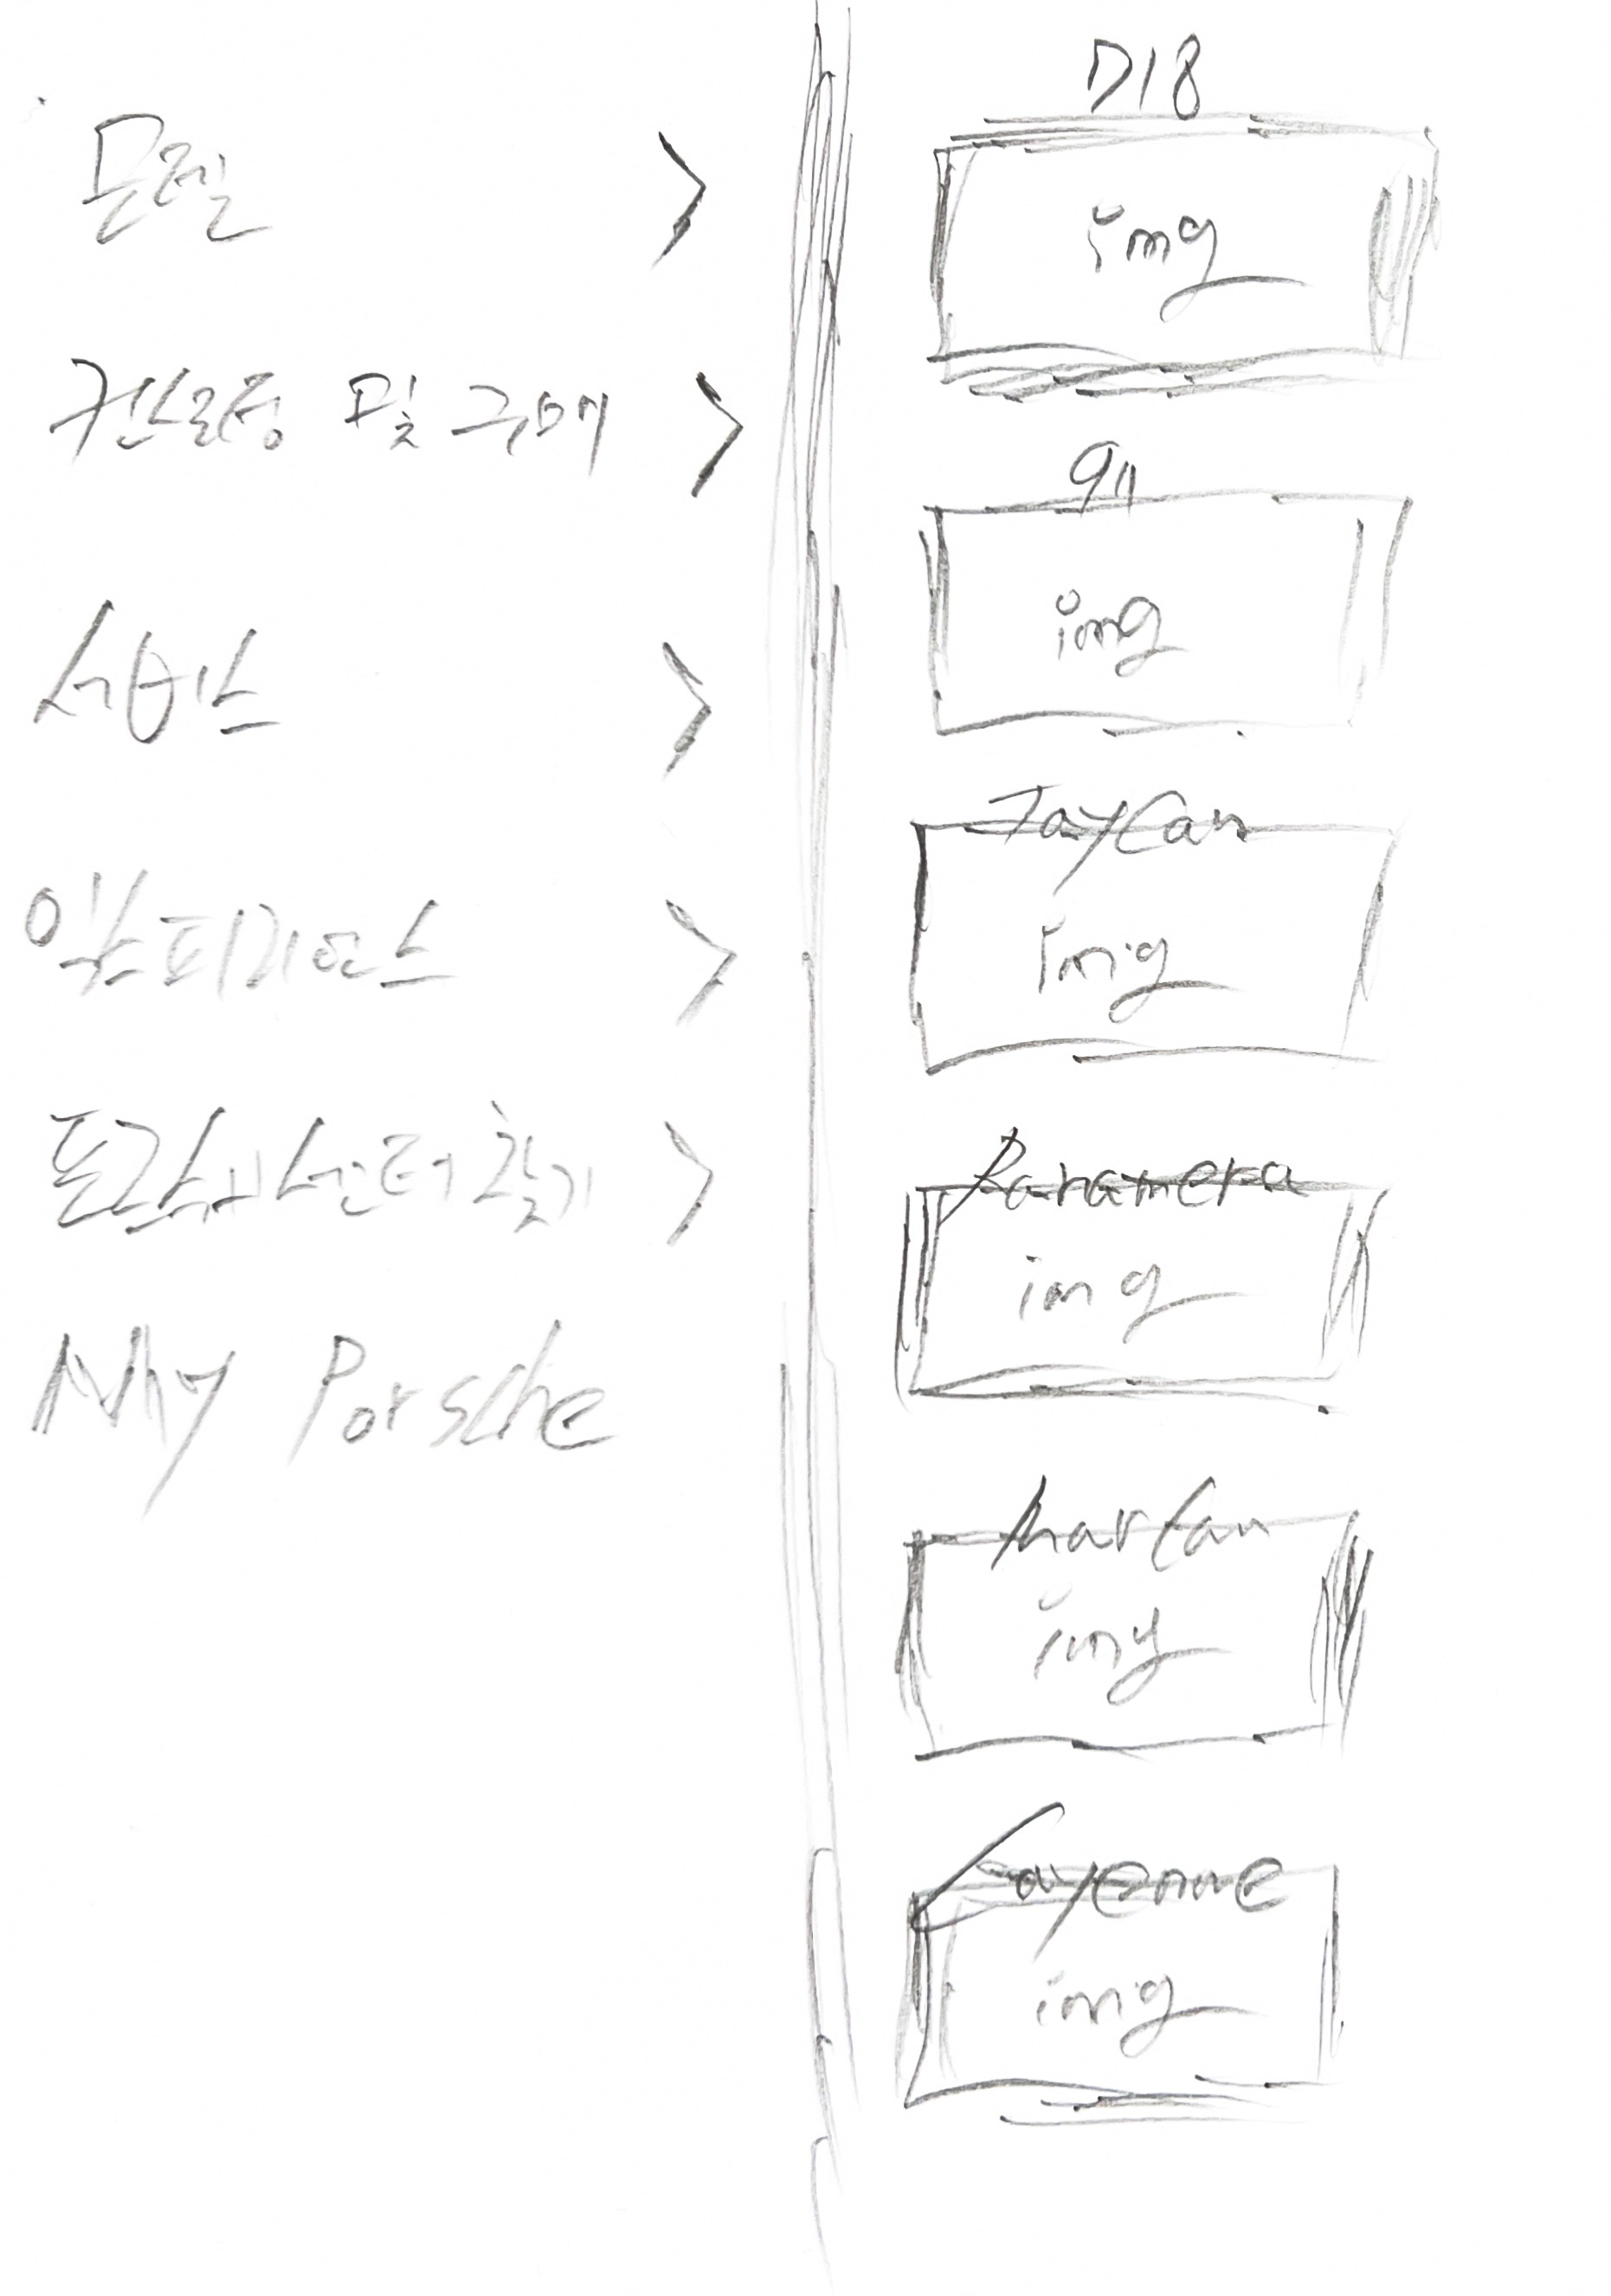 모델 >
컨설팅 및 구매 >
서비스 >
익스피리언스 >
포르쉐 센터 찾기 >
My Porsche
718
img
911
img
Taycan
img
Panamera
img
Macan
img
Cayenne
img